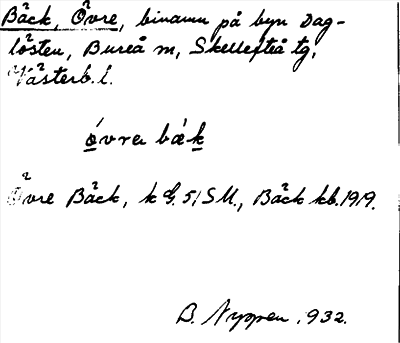 Bäck, Övre, binamn på byn Dag-
lösten, Bureå m, Skellefteå tg,
Västerb. l.
óvra bǽk
Övre Bäck, k G. 51 SM., Bäck kb. 1919.
B. Nyppen. 1932.